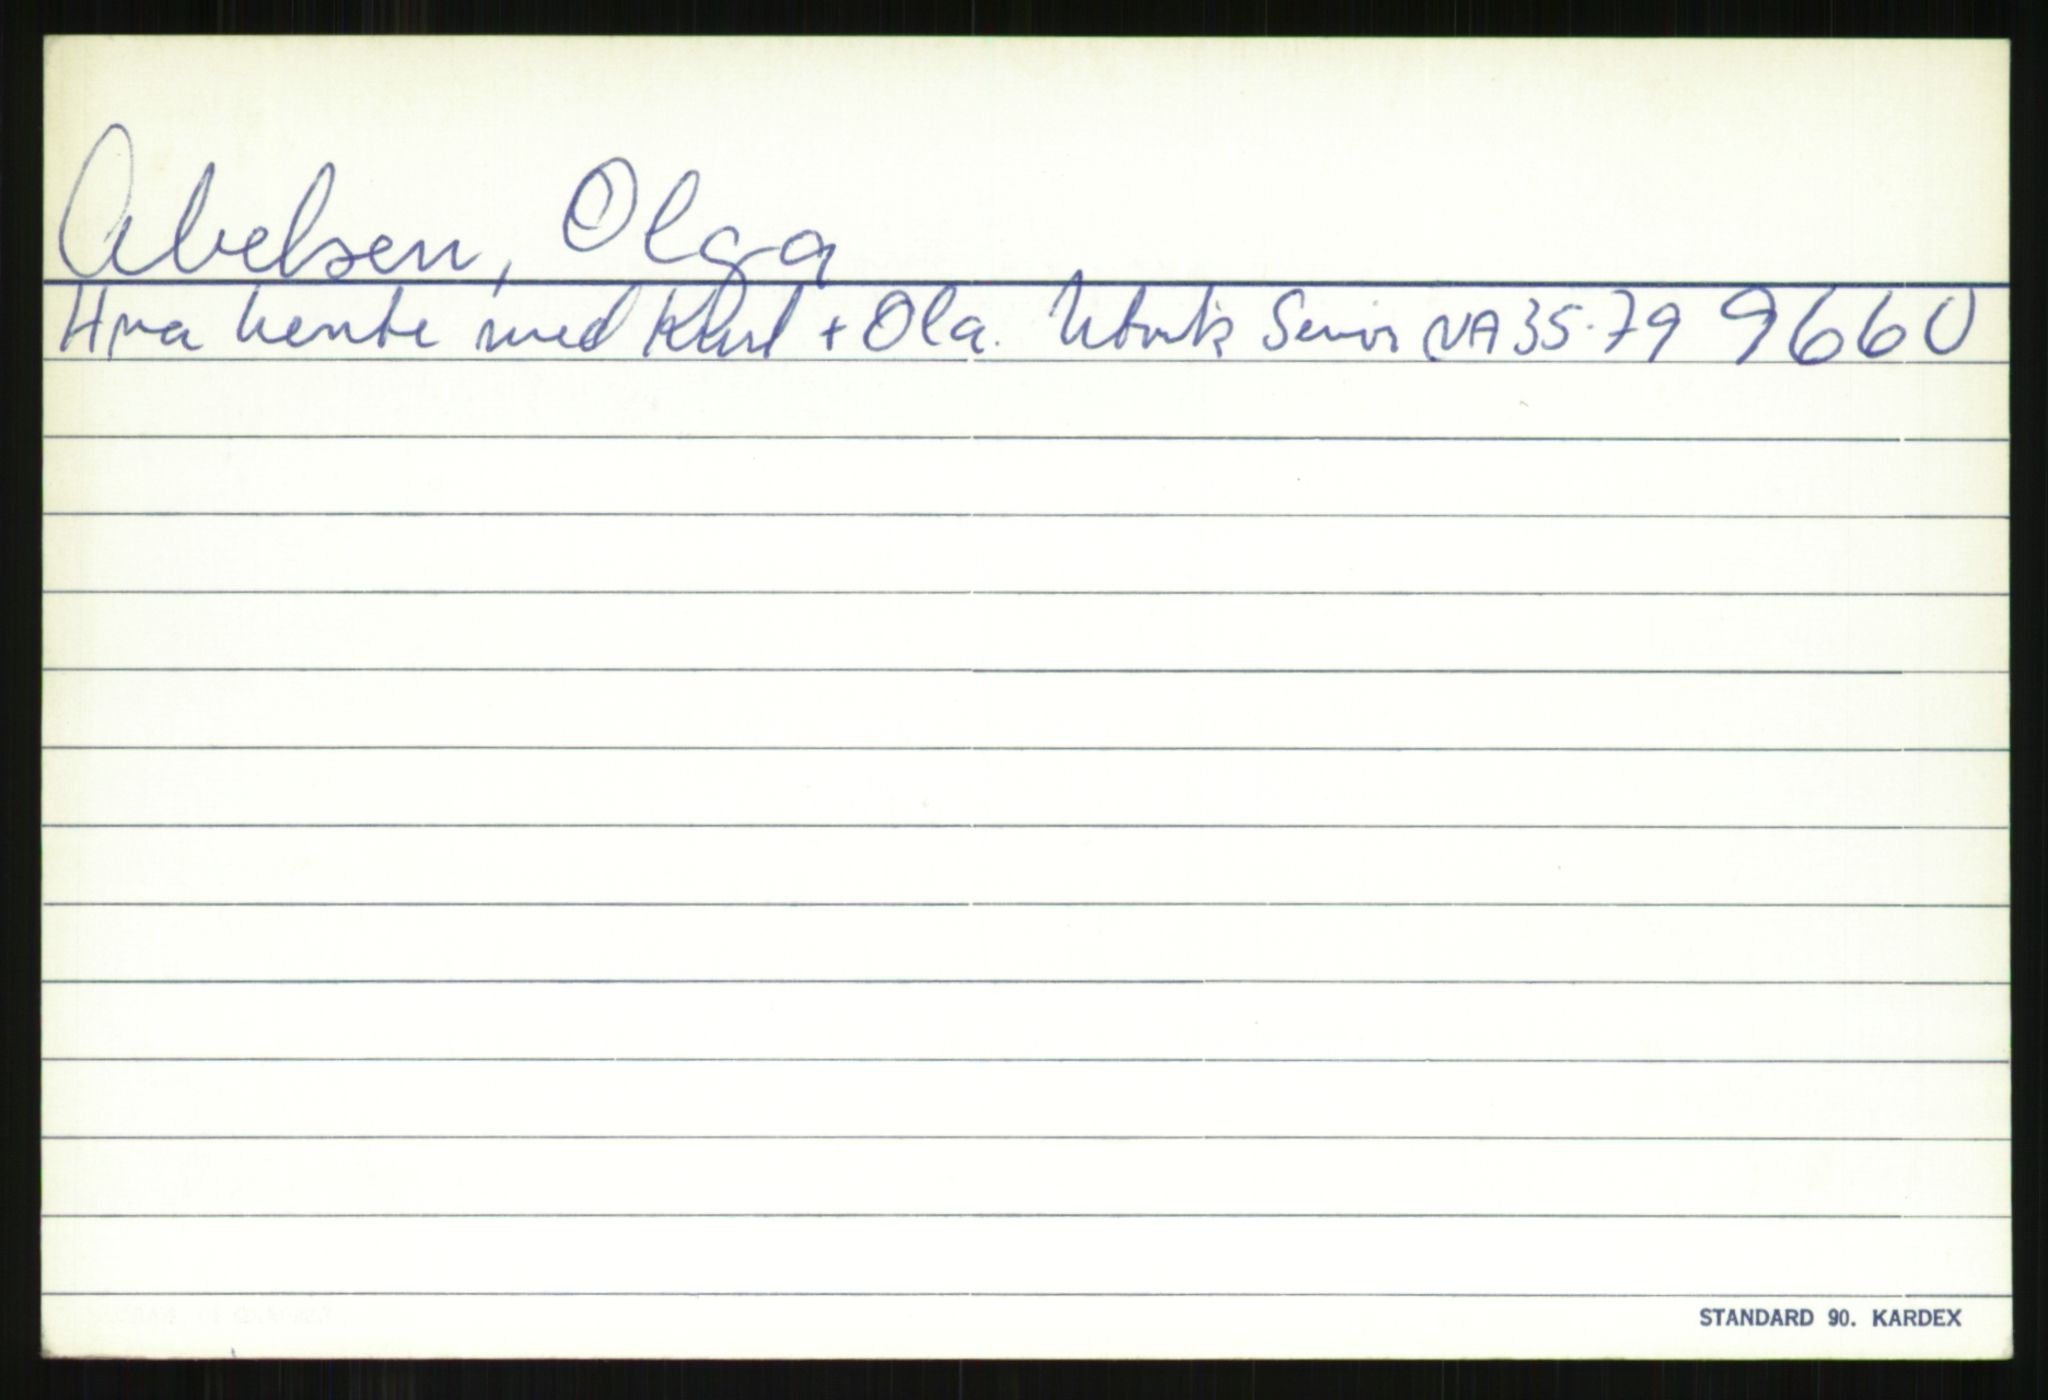 Abelsen, Olga
Hva hente med Karl + Ola. Utvik Senior NA 35-79 9660
STANDARD 90. KARDEX